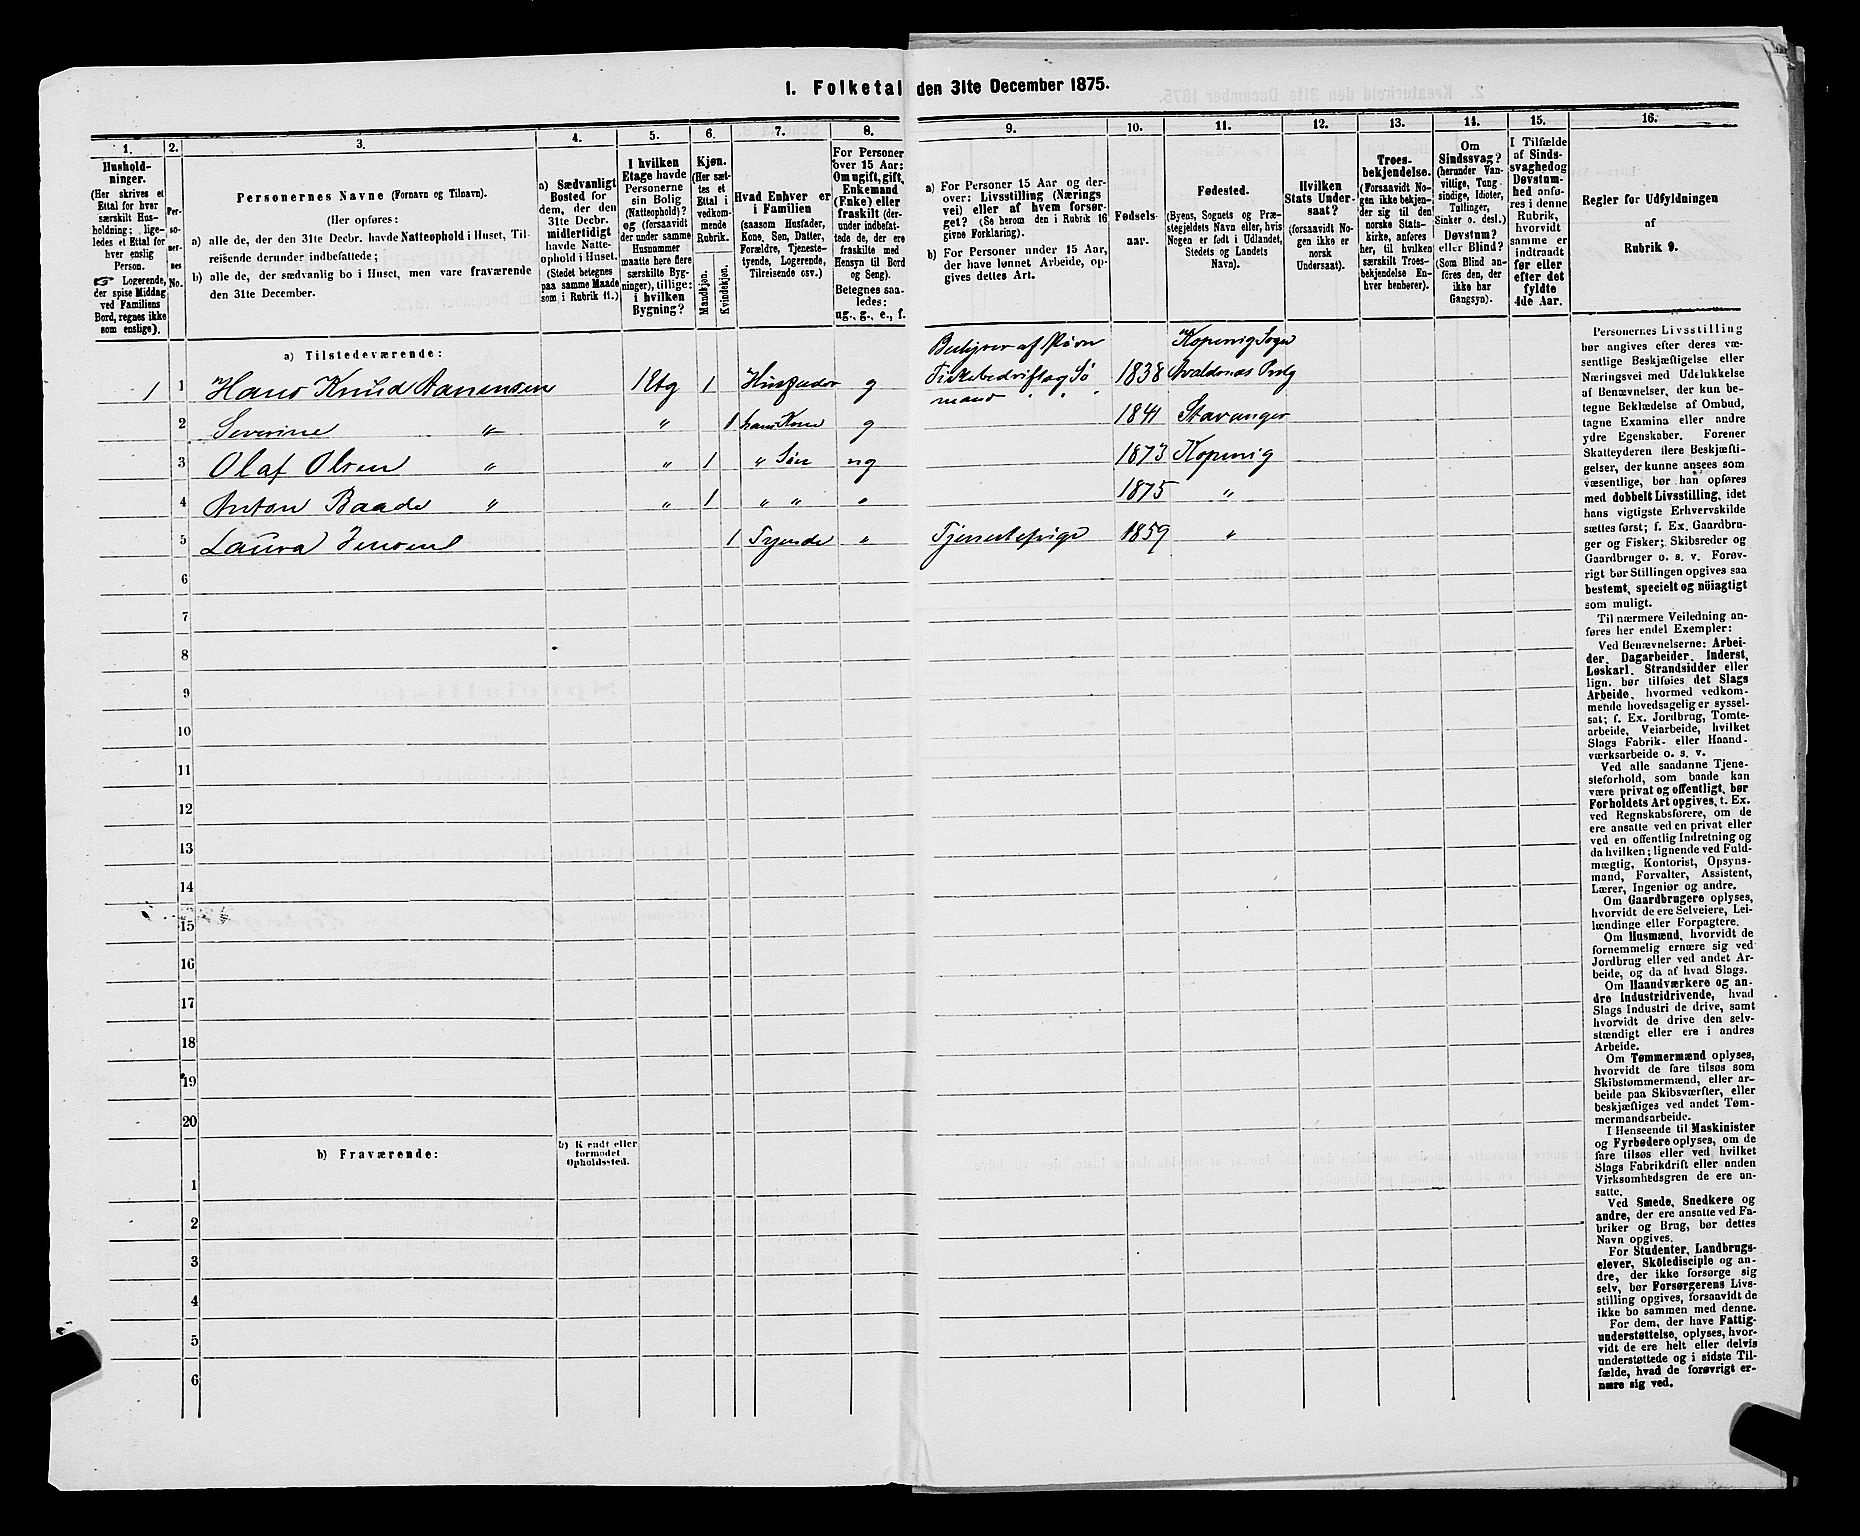 1. Folketal den 31te December 1875.
1.
Hushold-
ninger.
(Her skrives et
Ettal for hver
særskilt Hus-
holdning; lige-
ledes et Ettal for
hver enslig
Person.
☞ Logerende,
der spise Middag
ved Familiens
Bord, regnes ikke
som enslige).
2.
Per-
so-
ner-
nes
No.
3.
Personernes Navne (Fornavn og Tilnavn).
(Her opføres:
a) alle de, der den 31te Decbr. havde Natteophold i Huset, Til-
reisende derunder indbefattede;
b) alle de, der sædvanlig bo i Huset, men vare fraværende
den 31te December.
4.
a) Sædvanligt
Bosted for
dem, der den
31te Decbr.
midlertidigt
havde Natte-
ophold i Huset.
(Stedet betegnes
paa samme Maade
som i Rubrik 11.)
5.
I hvilken
Etage havde
Personerne
sin Bolig
(Natteophold)?
og (forsaavidt
der under samme
Husnummer
maatte høre flere
særskilte Byg-
ninger), tillige:
i hvilken
Bygning?
6.
Kjøn.
(Her sæt-
tes et
Ettal i
vedkom-
mende
Rubrik.
Mandkjøn.
Kvindekjøn.
7.
Hvad Enhver er
i Familien
(saasom Husfader,
Kone, Søn, Datter,
Forældre, Tjeneste-
tyende, Logerende,
Tilreisende osv.)
8.
For Personer
over 15 Aar:
Om ugift, gift,
Enkemand
(Enke) eller
fraskilt (der-
under indbefat-
tede de, der ere
fraskilte med
Hensyn til Bord
og Seng).
Betegnes saa-
ledes:
ug., g., e., f.
9.
a) For Personer 15 Aar og der-
over: Livsstilling (Nærings
vei) eller af hvem forsør-
get? (Se herom den i Rubrik 16
givne Forklaring).
b) For Personer under 15 Aar,
der have lønnet Arbeide, op-
gives dettes Art.
10.
Fødsels-
aar.
11.
Fødested.
(Byens, Sognets og Præ-
stegjeldets Navn eller, hvis
Nogen er født i Udlandet,
Stedets og Landets
Navn).
12.
Hvilken
Stats Under-
saat?
(forsaavidt No-
gen ikke er
norsk
Undersaat).
13.
Troes-
bekjendelse.
(Forsaavidt No-
gen ikke bekjen-
der sig til den
norske Stats-
kirke, anføres
her, til hvilken
særskilt Troes-
bekjendelse En-
hver henhører).
14.
Om
Sindssvag?
(herunder Van-
vittige, Tung-
sindige, Idioter,
Tullinger,
Sinker o. desl.)
Døvstum?
eller Blind?
(Som Blind an-
føres den, der
ikke har
Gangsyn).
15.
I Tilfælde
af Sinds-
svaghed og
Døvstum-
hed anfø-
res i denne
Rubrik,
hvorvidt
samme er
indtraadt
før eller
efter det
fyldte
4de Aar.
16.
Regler for Udfyldningen
af
Rubrik 9.
a) Tilstedeværende:
Bestyrer af
Kopervig Sogn
1 1 Hans Knud Aanensen 1 Etg 1 Husfader g Fiskebedrift og Sø 1838 Avaldsnæs Prstg
mand
2 Severine " " 1 hans Kone g 1841 Stavanger
3 Olaf Olsen " " 1 " Søn ug 1873 Kopervig
4 Anton Baade " " 1 " " " 1875 "
5 Laura Jensen 1 Tyende " Tjenestepige 1859 "
6
7
8
9
10
11
12
13
14
15
16
17
18
19
20
b) Fraværende:
b) Kjendt eller
formodet
Opholdssted.
1
2
3
4
5
6
Personernes Livsstilling
bør angives efter deres væ-
sentlige Beskjæftigelse eller
Næringsvei med Udelukkelse
af Benævnelser, der kun be-
tegne Beklædelse af Ombud,
tagne Examina eller andre
ydre Egenskaber. Forener
Skatteyderen flere Beskjæfti-
gelser, der kunne ansees som
væsentlige, bør han opføres
med dobbelt Livsstilling, idet
hans vigtigste Erhvervskilde
sættes først; f. Ex. Gaardbru-
ger og Fisker; Skibsreder og
Gaardbruger o. s. v. Forøv-
rigt bør Stillingen opgives saa
bestemt, specielt og nøiagtigt
som muligt.
Til nærmere Veiledning an-
føres her endel Exempler:
Ved Benævnelserne: Arbei-
der, Dagarbeider, Inderst,
Løskarl, Strandsidder eller
lign. bør tilføies det Slags
Arbeide, hvormed vedkom-
mende hovedsagelig er syssel-
sat; f. Ex. Jordbrug, Tomte-
arbeide, Veiarbeide, hvilket
Slags Fabrik- eller Haand-
værksarbeide o. s. v.
Ved alle saadanne Tjene-
steforhold, som baade kan
være privat og offentligt, bør
Forholdets Art opgives, t. Ex.
ved Regnskabsførere, om de
ere ansatte ved en privat eller
ved en offentlig Indretning og
da hvilken; lignende ved Fuld-
mægtig, Kontorist, Opsyns-
mand, Forvalter, Assistent,
Lærer, Ingeniør og andre.
Om Gaardbrugere oplyses,
hvorvidt de ere Selveiere, Lei-
lændinge eller Forpagtere.
Om Husmænd, hvorvidt de
fornemmelig ernære sig ved
Jordbrug eller ved andet Ar-
beide, og da af hvad Slags.
Om Haandværkere og an-
dre Industridrivende, hvad
Slags Industri de drive, samt
hvorvidt de drive den selv-
stændigt eller ere i andres
Arbeide.
Om Tømmermænd oplyses,
hvorvidt de fare tilsøs som
Skibstømmermænd, eller ar-
beide paa Skibsværfter, eller
beskjæftiges ved andet Tøm-
mermandsarbeide.
I Henseende til Maskinister
og Fyrbødere oplyses, om de
fare tilsøs eller ved hvilket
Slags Fabrikdrift eller anden
Virksomhedsgren de ere an-
satte.
Ved Smede, Snedkere og
andre, der ere ansatte ved Fa-
briker og Brug, bør dettes
Navn opgives.
For Studenter, Landbrugs-
elever, Skoledisciple og an-
dre, der ikke forsørge sig
selv, bør Forsørgerens Livs-
stilling opgives, forsaavidt de
ikke bo sammen med denne.
For dem, der have Fattig-
understøttelse, oplyses, hvor-
vidt de ere helt eller delvis
understøttede og i sidste Til-
fælde, hvad de forøvrigt er-
nære sig ved.